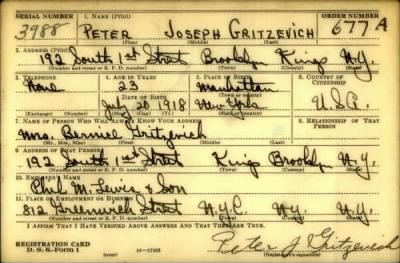 SERIAL NUMBER 1. NAME (Print) ORDER NUMBER
3988 PETER JOSEPH GRITZEVICH 677 A
(First) (Middle) (Last)
2. ADDRESS (Print)
192 South 1st Street Brooklyn Kings N.Y.
(Number and street or R. F. D. number) (Town) (County) (State)
3. TELEPHONE 4. AGE IN YEARS 5. PLACE OF BIRTH 6. COUNTRY OF CITIZENSHIP
None 23 Manhattan
DATE OF BIRTH (Town or county)
July 20 1918 New York U.S.A.
(Exchange) (Number) (Mo.) (Day) (Yr.) (State or country)
7. NAME OF PERSON WHO WILL ALWAYS KNOW YOUR ADDRESS 8. RELATIONSHIP OF THAT PERSON
Mrs. Bernice Gritzevich
(Mr., Mrs., Miss) (First) (Middle) (Last)
9. ADDRESS OF THAT PERSON
192 South 1st Street Kings Brooklyn N.Y.
(Number and street or R. F. D. number) (Town) (County) (State)
10. EMPLOYER'S NAME
Phil. M. Lewis & Son
11. PLACE OF EMPLOYMENT OR BUSINESS
812 Greenwich Street N.Y.C. N.Y. N.Y.
(Number and street or R. F. D. number) (Town) (County) (State)
I AFFIRM THAT I HAVE VERIFIED ABOVE ANSWERS AND THAT THEY ARE TRUE.
Peter J Gritzevich
REGISTRATION CARD
D. S. S. Form 1 (over) 16—17105 (Registrant's signature)